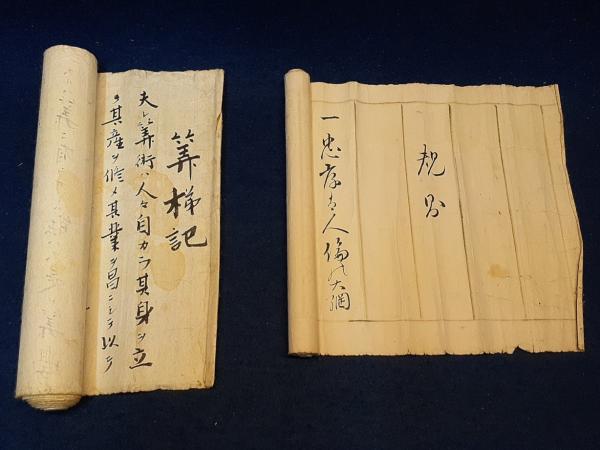 筭梯記
夫レ筭術ハ人々自カラ其身ヲ立
テ其産ヲ修メ其業ヲ昌ニシテ以テ
規則
一忠孝者人倫之大綱